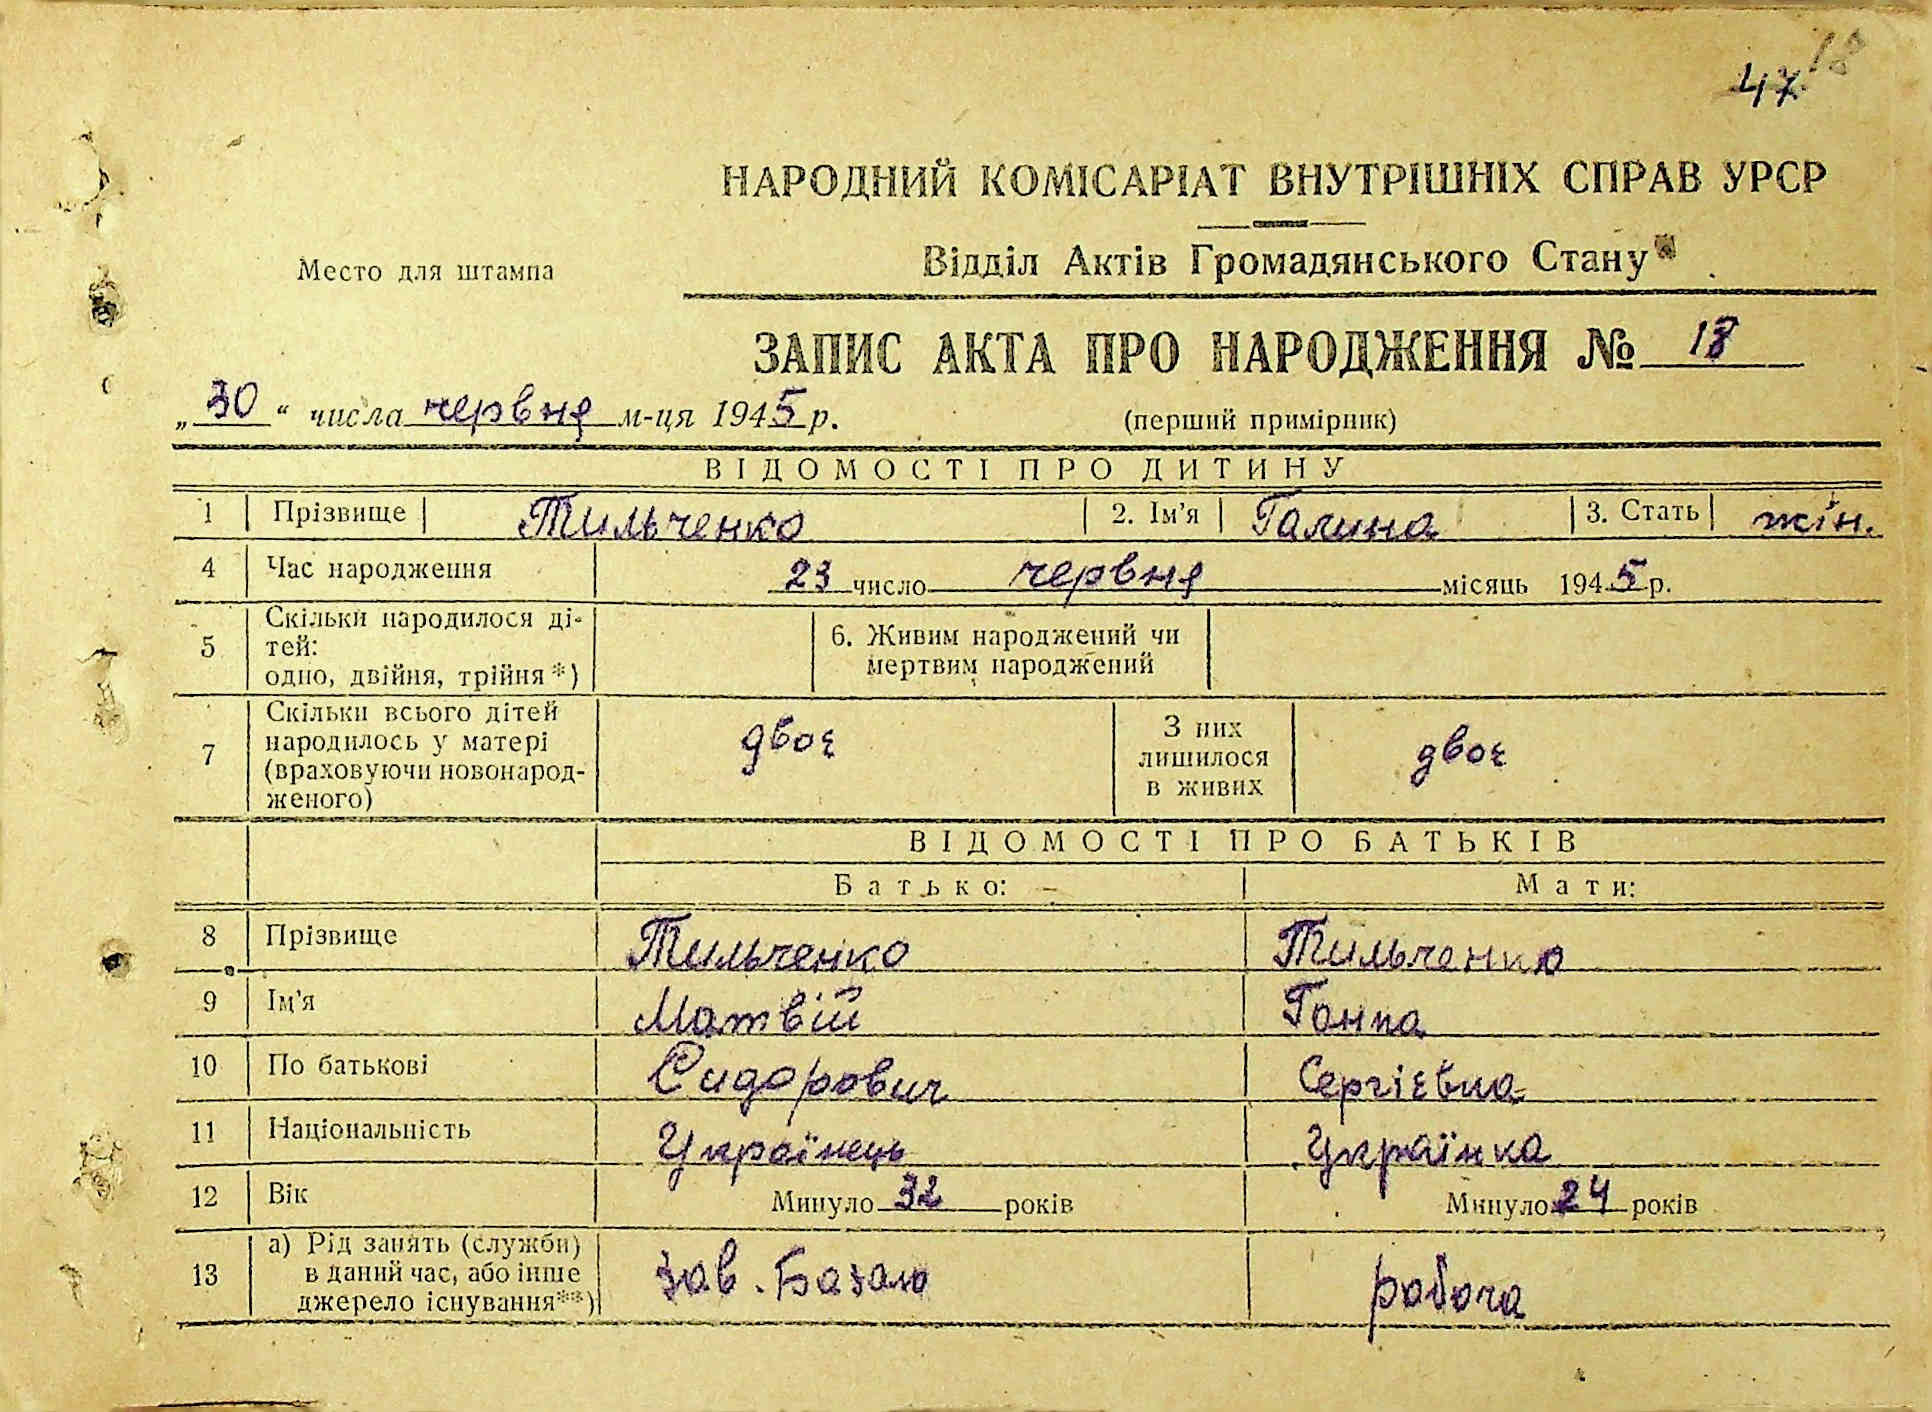 47 18
НАРОДНИЙ КОМІСАРІАТ ВНУТРІШНІХ СПРАВ УРСР
Место для штампа
Відділ Актів Громадянського Стану
ЗАПИС АКТА ПРО НАРОДЖЕННЯ № 18
„30“ числа червня м-ця 1945 р.
(перший примірник)
ВІДОМОСТІ ПРО ДИТИНУ
1 Прізвище Тильченко 2. Ім'я Галина 3. Стать жін.
4 Час народження 23 число червня місяць 1945 р.
5 Скільки народилося ді-
тей:
одно, двійня, трійня*)
6. Живим народжений чи
мертвим народжений
7 Скільки всього дітей
народилось у матері
(враховуючи новонарод-
женого)
двоє
З них
лишилося
в живих
двоє
ВІДОМОСТІ ПРО БАТЬКІВ
Батько: Мати:
8 Прізвище Тильченко Тильченко
9 Ім'я Матвій Ганна
10 По батькові Сидорович Сергієвна
11 Національність Українець Українка
12 Вік Минуло 32 років Минуло 24 років
13 а) Рід занять (служби)
в даний час, або інше
джерело існування**)
зав. Базою
робоча